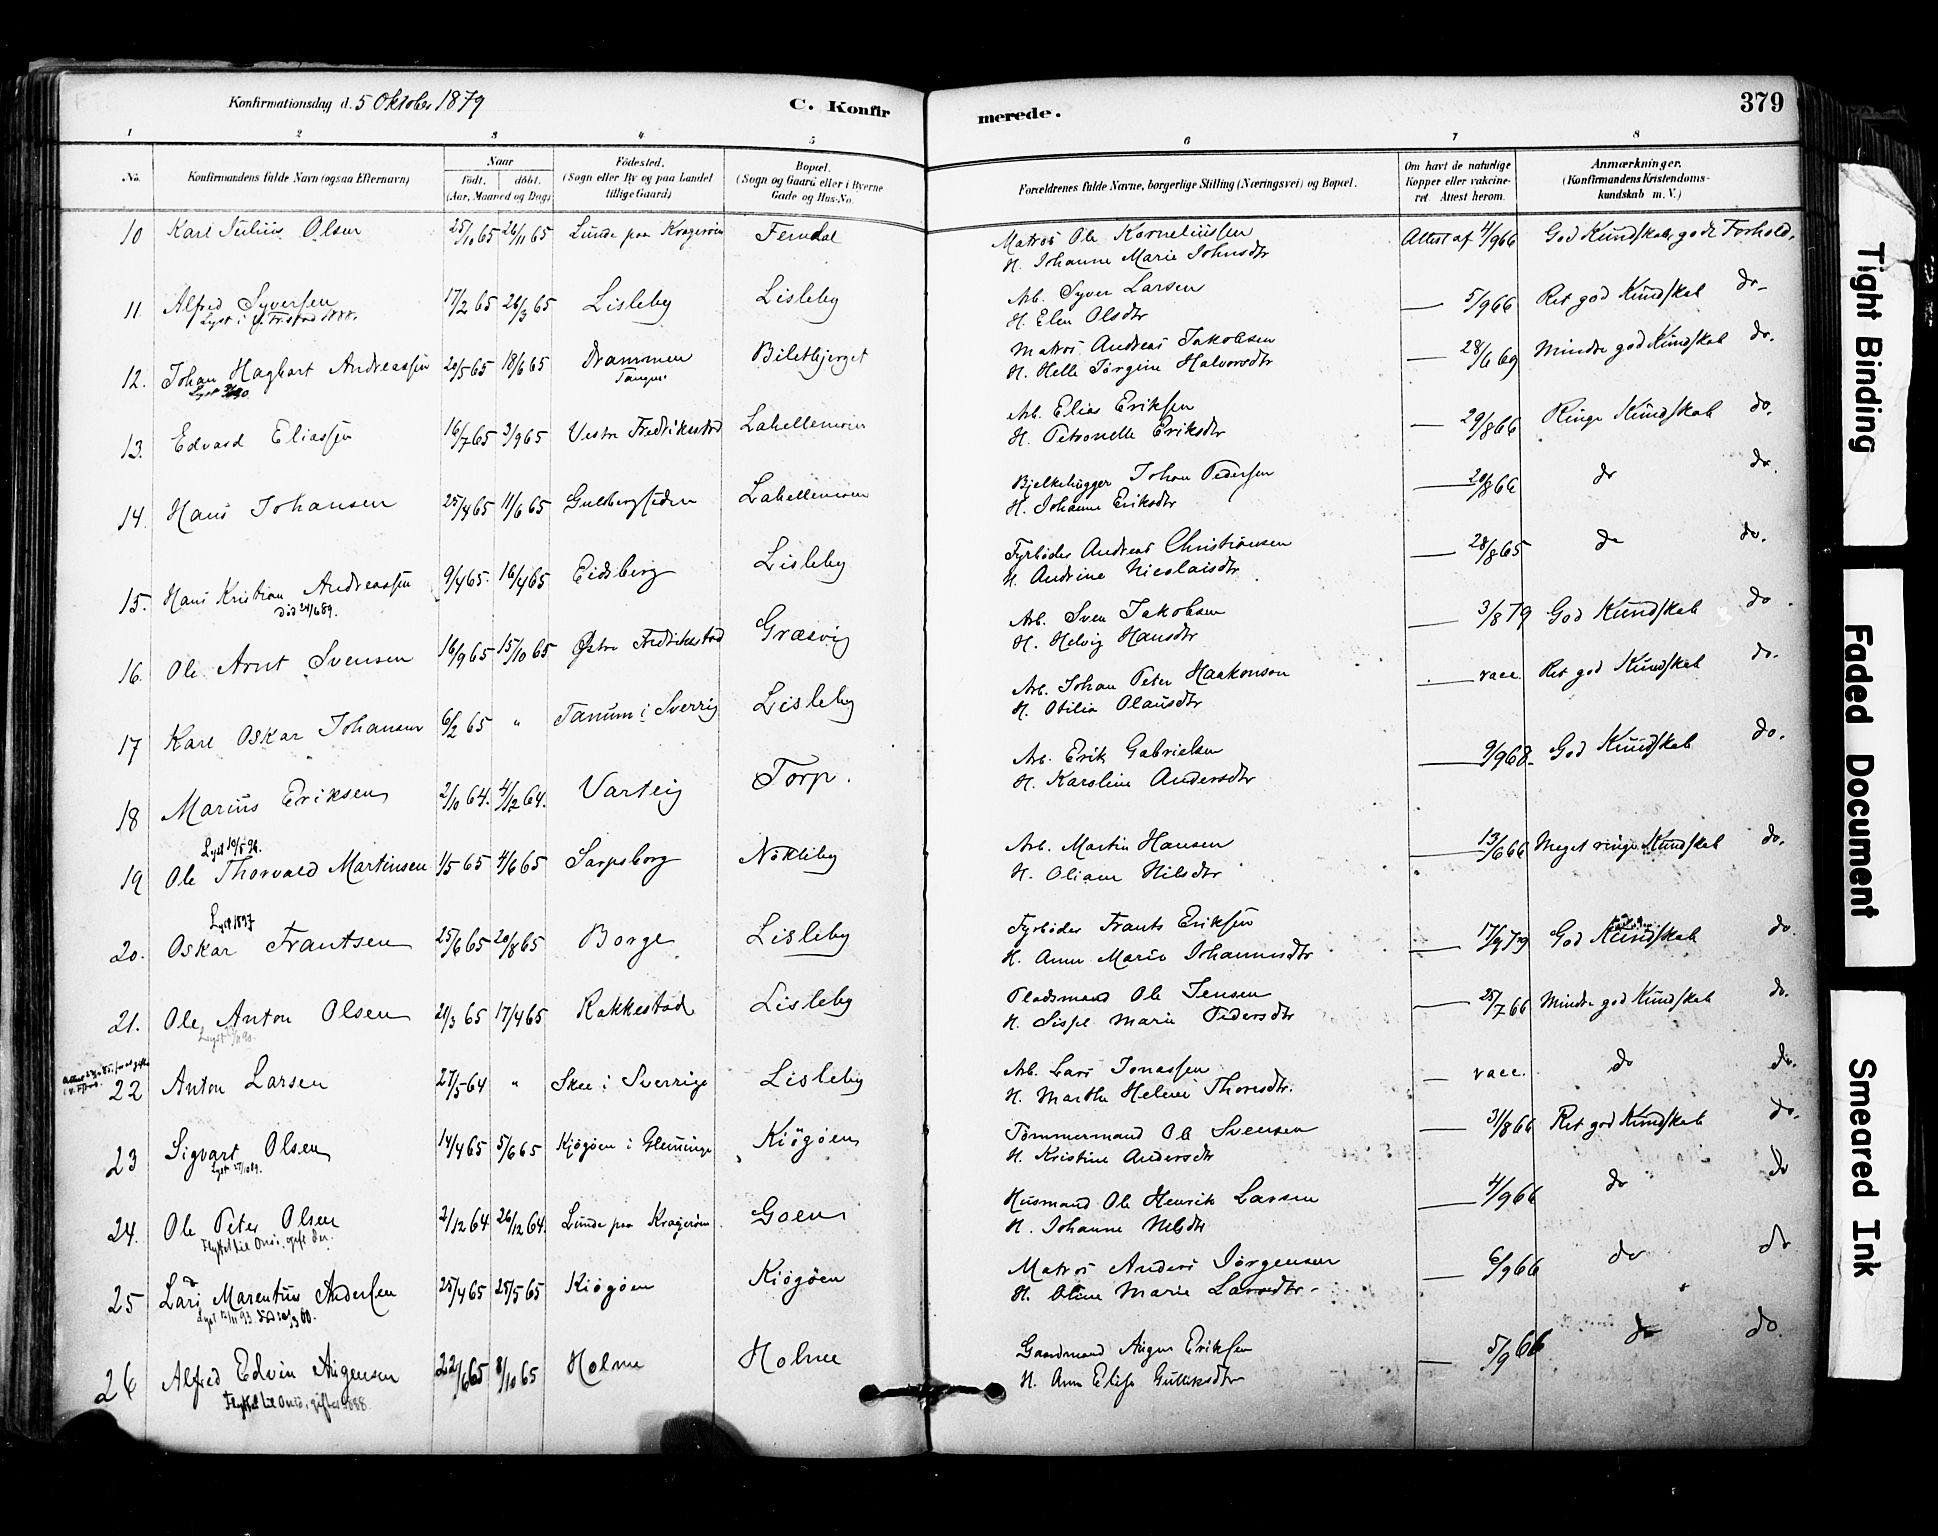 Konfirmationsdag d. 5 Oktober 1879
C. Konfir
merede.
379
1 2 3 4 5 6 7 8
No.
Konfirmandens fulde Navn (ogsaa Efternavn)
Naar
født. døbt.
(Aar, Maaned og Dag)
Fødested.
(Sogn eller By og paa Landet
tillige Gaard)
Bopæl.
(Sogn og Gaard eller i Byerne
Gade og Hus-No.
Forældrenes fulde Navne, borgerlige Stilling (Næringsvei) og Bopæl.
Om havt de naturlige
Kopper eller vakcine-
ret. Attest herom.
Anmærkninger.
(Konfirmandens Kristendoms-
kundskab m. V.)
10 Karl Julius Olsen 25/10 65 26/11 65 Lunde paa Kragerøen Ferndal Matros Ole Korneliussen Attest af 4/9 66 God Kundskab, godt Forhold.
H. Johanne Marie Johnsdtr
11. Alfred Syversen 17/2 65 26/3 65 Lisleby Lisleby Arb. Syver Larsen — 5/9 66 Ret god Kundskab do.
H. Elen Olsdtr
12. Johan Hagbart Andreassen 20/5 65 18/6 65 Drammen Biletbjerget Matros Andreas Jakobsen — 28/6 69 Mindre god Kundskab do.
Tangen.
H. Helle Jørgine Halvorsdtr
13. Edvard Eliassen 16/7 65 3/9 65 Vestre Fredriksstad Labellemoen Arb. Elias Eriksen — 29/8 66 Ringe Kundskab do.
H. Petronelle Eriksdtr
14. Hans Johansen 25/4 65 11/6 65 Gulbergsiden Labellemoen Bjelkehugger Johan Pedersen — 20/8 66 do do.
H. Johanne Eriksdtr
15. Hans Kristian Andreassen 9/4 65. 16/4 65 Eidsberg Lisleby Fyrbøder Andreas Christiansen — 28/8 65 do do.
Død 24/6 89.
H. Andrine Nicolaisdtr
16. Ole Arnt Svensen 16/9 65 15/10 65 Østre Fredriksstad Græsvig Arb. Sven Jakobsen — 3/8 79 God Kundskab do.
H. Helvig Hansdtr
17 Karl Oskar Johansen 6/2 65 " Tanum i Sverrig Lisleby Arb. Johan Peter Haakonson — vacc. Ret god Kundskab do.
H. Otilia Olausdtr
18 Marius Eriksen 2/10 64. 4/12 64. Varteig Torp. Arb. Erik Gabrielsen — 9/9 68. God Kundskab do.
H. Karoline Andersdtr
Lyst 10/5 94.
19 Ole Thorvald Martinsen 1/5 65 4/6 65 Sarpsborg Nökleby Arb. Martin Hansen — 13/6 66 Meget ringe Kundskab do.
H. Oliane Nilsdtr
Lyst 1897
20. Oskar Frantsen 25/6 65 20/8 65 Borge Lisleby Fyrbøder Frants Eriksen — 17/9 79 God Kundskab do.
H. Anne Marie Johannesdtr
21. Ole Anton Olsen 20/3 65 17/4 65 Rakkestad Lisleby Pladsmand Ole Jensen — 25/7 66 Mindre god Kundskab do.
H. Sispe Marie Pedersdtr
22 Anton Larsen 27/5 64 " Skee i Sverrige Lisleby Arb. Lars Jonassen — vacc. do do.
H. Marthe Helene Thoresdtr.
23 Sigvart Olsen 14/4 65 5/6 65 Kjøgøen i Glemminge Kjøgøen Tømmermand Ole Svensen — 31/8 66 Ret god Kundskab do.
Lyst 27/10 89.
H. Kristine Andersdtr
24. Ole Peter Olsen 2/12 64 26/12 64. Lunde paa Kragerøen Goen Husmand Ole Henrik Larsen — 4/9 66 do do
Flyttet til Onsö, gift der.
H. Johanne Nilsdtr
25 Lars Marentius Andersen 25/4 65 25/5 65 Kiøgøen Kiøgøen Matros Anders Jørgensen — 6/9 66 do do
H. Oline Marie Larsdtr.
26 Alfred Edvin Augensen 22/6 65 8/10 65 Holme Holme Gaardmand Augen Eriksen — 5/9 66 do do.
Flyttet til Onsö, gifted 1888.
H. Anne Elise Gulliksdtr
Tight Binding
Faded Document
Smeared Ink